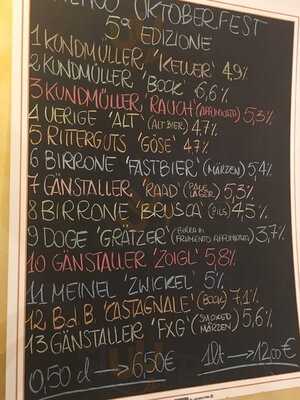 OKTOBERFEST
5ª EDIZIONE
1 KUNDMÜLLER 'KELLER' 4,9%
2 KUNDMÜLLER 'BOCK' 6,6%
3 KUNDMÜLLER 'RAUCH' (AFFUMICATA) 5,3%
4 UERIGE 'ALT' (ALTBIER) 4,7%
5 RITTERGUTS 'GOSE' 4,7%
6 BIRRONE 'FASTBIER' (MÄRZEN) 5,4%
7 GÄNSTALLER 'RAAD' (PALE LAGER) 5,3%
8 BIRRONE 'BRUSCA' (PILS) 4,5%
9 DOGE 'GRÄTZER' (BIRRA DI FRUMENTO AFFUMICATA) 3,7%
10 GÄNSTALLER 'ZOIGL' 5,8%
11 MEINEL 'ZWICKEL' 5%
12 BdB 'CASTAGNALE' (BOCK) 7,1%
13 GÄNSTALLER 'FXG' (SMOKED MÄRZEN) 5,6%
0,50 cl → 6,50€ 1lt → 12,00€